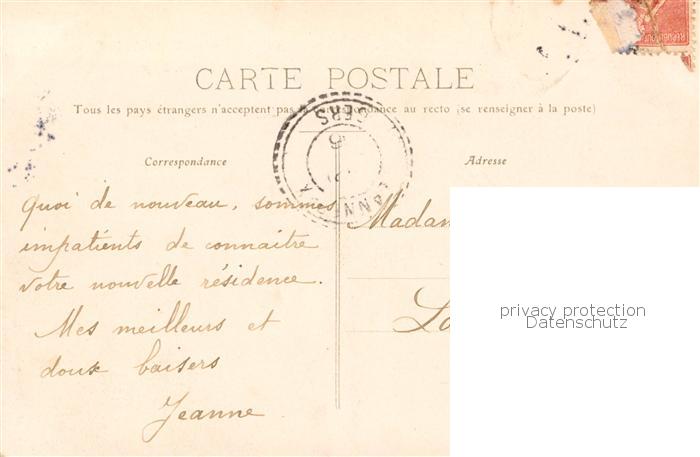 CARTE POSTALE
Tous les pays étrangers n'acceptent pas la correspondance au recto (se renseigner à la poste)
GERS
Correspondance
Adresse
Quoi de nouveau, sommes
impatients de connaitre
votre nouvelle résidence.
Mes meilleurs et
doux baisers
Jeanne
Madam
privacy protection
Datenschutz